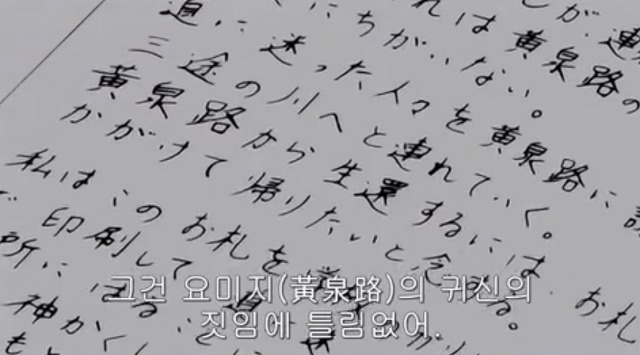 が連
れは黄泉路の
ちがいない。
道に迷った人々を黄泉路に
三途の川へと連れていく。
黄泉路から生還するには、お札
かがけて帰りたいと念ずる。
私は、このお札を
印刷して
所に はる
神かくし
그건 요미지(黃泉路)의 귀신의
짓임에 틀림없어.